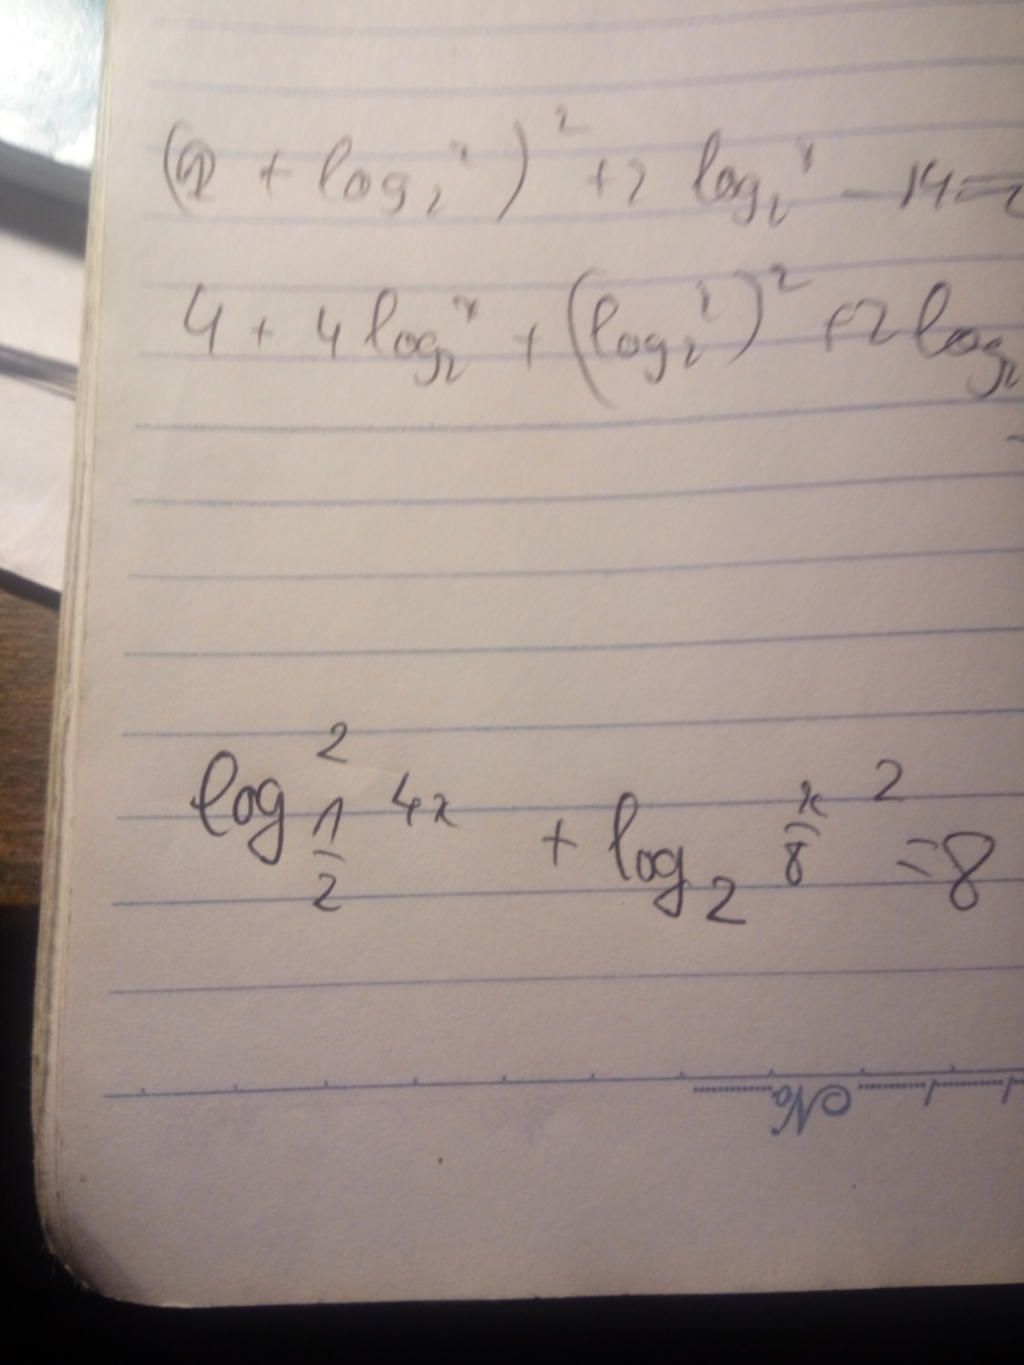 (2 + log₂ˣ)² + 2 log₂ˣ - 14 =
4 + 4 log₂ˣ + (log₂ˣ)² + 2 log₂
log²_{1/2} 4x + log₂ x²/8 = 8
No